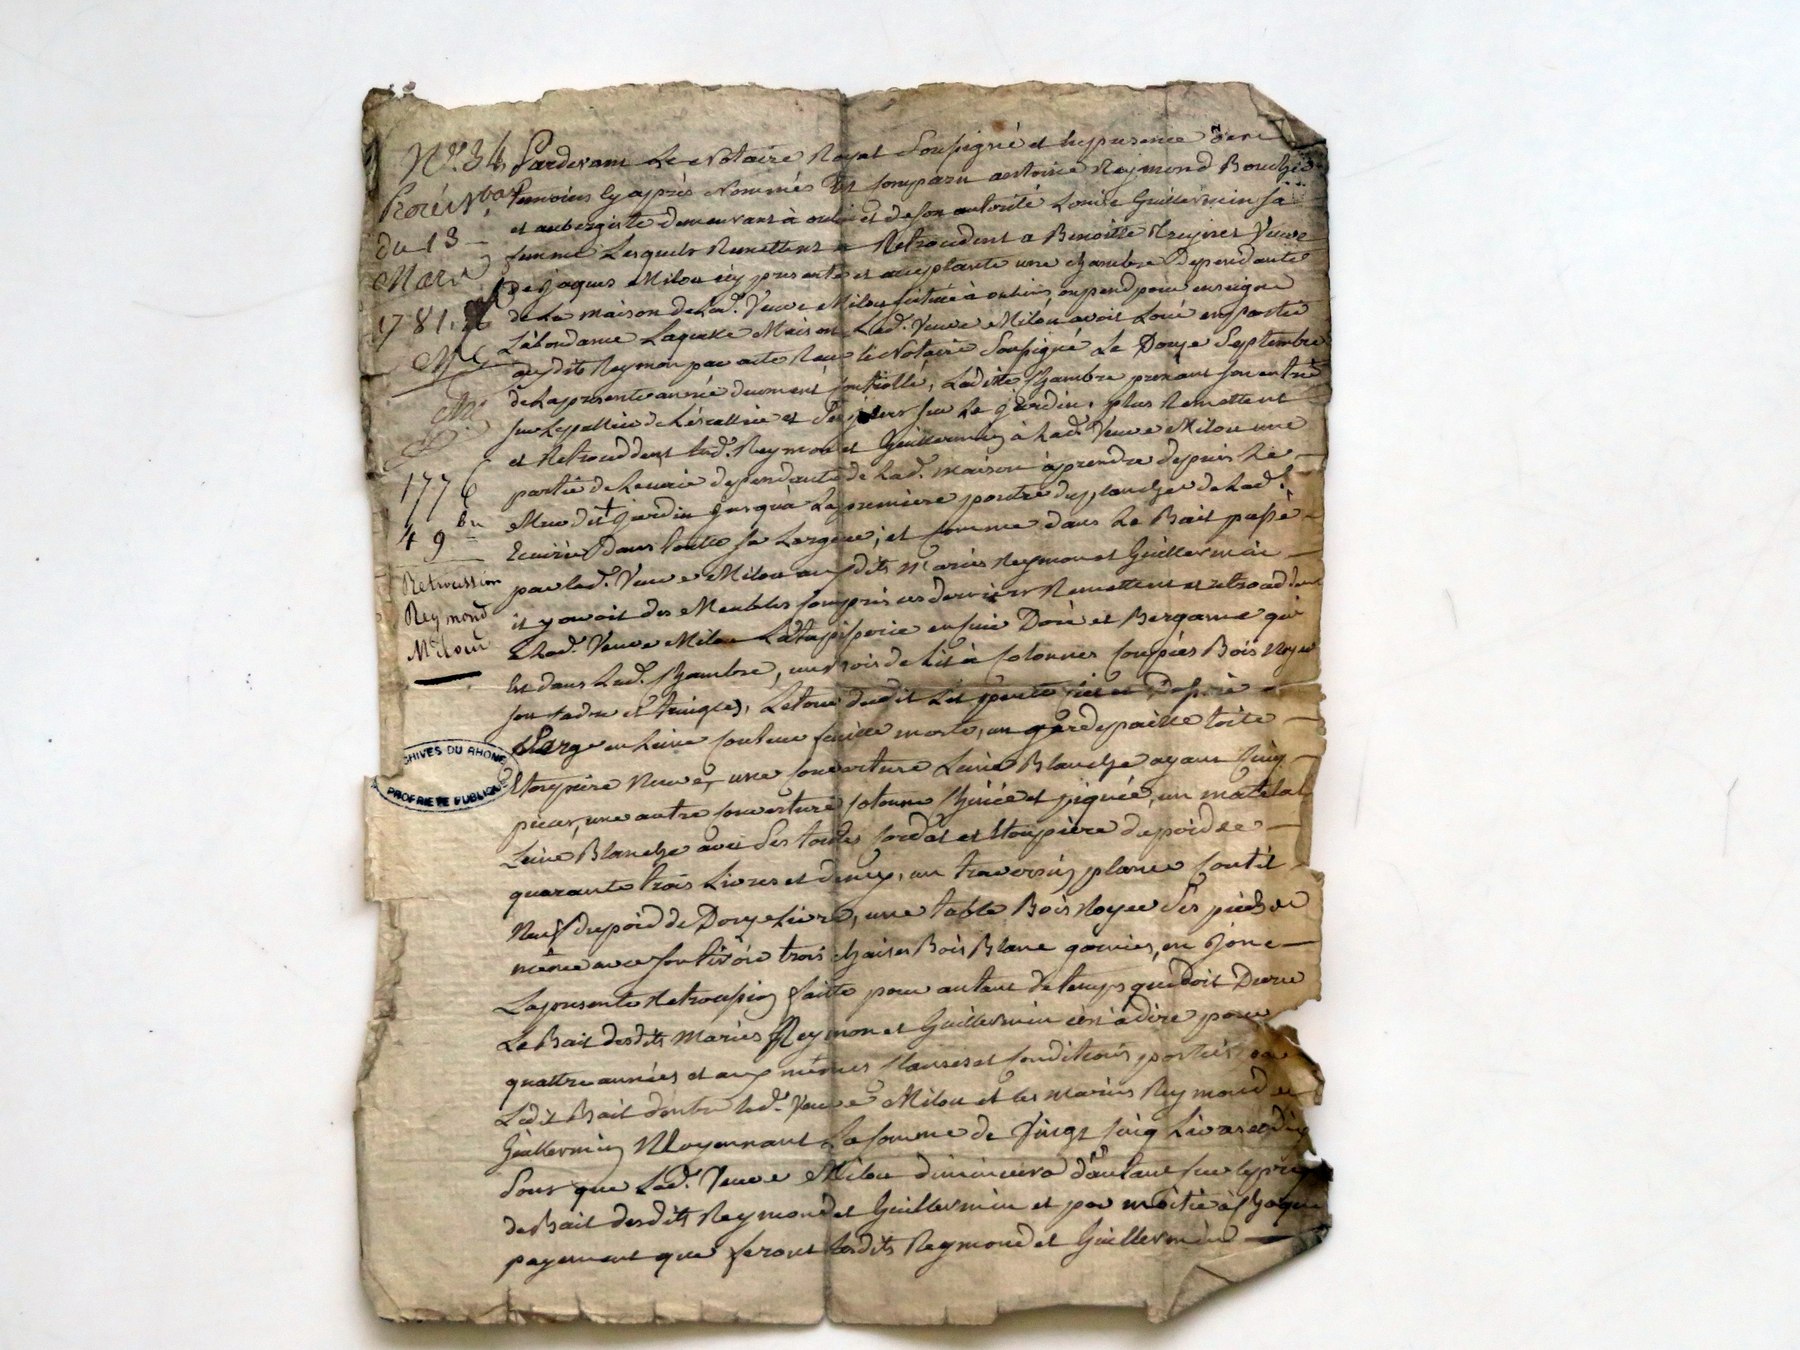 N.° 34
du 13
Mars
1781.
1776
49
Retrocession
Reymond
Milou
ARCHIVES DU RHONE
PROPRIETE PUBLIQUE
Pardevant Le Notaire Royal Soussigné et En presence des
temoins cy après Nommés Est Comparu antoine Reymond Boucher
et aubergiste demeurant à et de son autorité Louise Guillermin sa
femme Lesquels Remettent et Retroceddent a Benoitte veuve
de Jaques Milou icy presente et acceptante une chambre dependante
de La maison de Lad.e Veuve Milou située à ou pend pour enseigne
L'abondance Laquelle Maison Lad.e Veuve Milou avoit Loué en partie
audit Reymon par acte Reçu le Notaire Soussigné Le Douze Septembre
de La presente année duement Controllé, Laditte Chambre prenant son entrée
sur Le pallier de L'escallier et ses jours sur Le jardin. plus Remettent
et Retroceddent Lesd. Reymon et Guillermin à Lad.e Veuve Milou une
partie de Lecurie dependante de Lad.e maison à prendre depuis Le
Mur dudit jardin jusqu'à La premiere poutre du plancher de Lad.e
Ecurie dans toutte sa Largeur; et comme dans Le Bail passé
par lad.e Veuve Milou auxdits mariés Reymon et Guillermin
il y avoit des Meubles Compris ces derniers Remettent et retroceddent
à Lad.e Veuve Milou La tapisserie en cuir Doré et Bergame qui
Est dans Lad.e Chambre, un bois de Lit à Colonnes Coupées Bois Noyer
son cadre et tringles, Le tour dudit Lit
Sarge en Laine couleur feuille morte, un garde paille toile
Etoupiere Neuve, une couverture Laine Blanche ayant Cinq
pieces, une autre couverture Cotonne et piquée, un matelat
Laine Blanche avec ses toiles Cordat et Etoupière du poid de
quarante trois Livres et demy, un traversin plume Coutil
Neuf du poid de Douze Livres, une table Bois Noyer Ses pieds de
même avec son tiroir trois chaises Bois Blanc garnies en Jonc
La presente Retrocession faitte pour autant de temps que doit Durer
Le Bail desdits Mariés Reymon et Guillermin c'est à dire pour
quattre années et aux mêmes Clauses et Conditions portées par
Ledit Bail d'entre lad.e Veuve Milou et les mariés Reymond et
Guillermin Moyennant La somme de Vingt Cinq Livres et dix
Sous que Lad.e Veuve Milou diminuera d'autant sur le prix
de Bail desdits Reymond et Guillermin et par moitié à Chaque
payement que feront lesdits Reymond et Guillermin